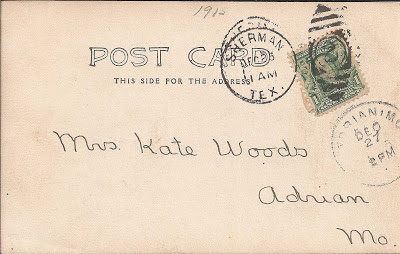 191
POST CARD
THIS SIDE FOR THE ADDRESS
SHERMAN
DEC
11 AM
TEX.
1
ADRIAN MO
DEC
27
PM
Mrs. Kate Woods
Adrian
Mo.